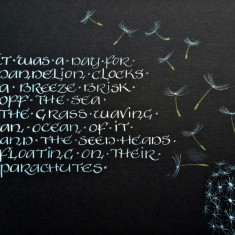 IT · WAS · A · DAY · FOR
DANDELION · CLOCKS ·
A · BREEZE · BRISK ·
OFF · THE · SEA ·
THE · GRASS · WAVING ·
AN · OCEAN · OF · IT ·
AND · THE · SEED · HEADS ·
FLOATING · ON · THEIR ·
PARACHUTES ·